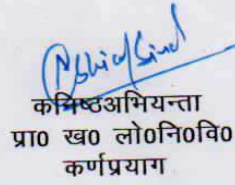 कनिष्ठअभियन्ता
प्रा0 ख0 लो0नि0वि0
कर्णप्रयाग